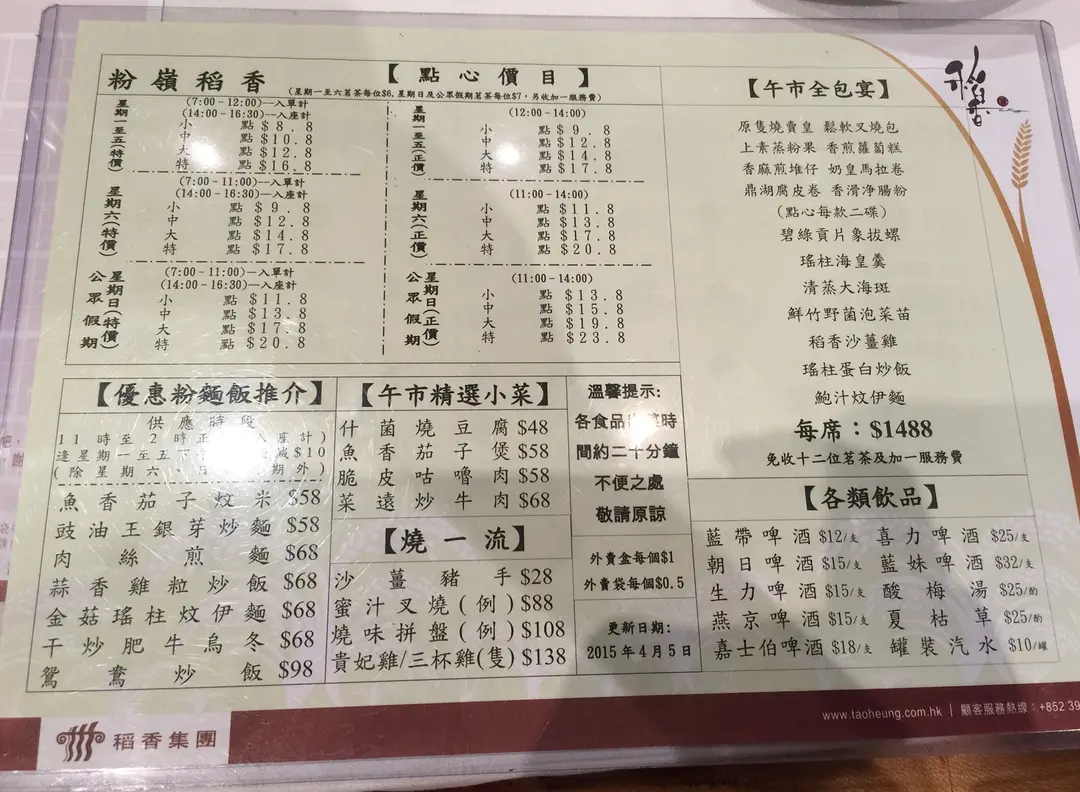 粉嶺稻香
【點心價目】
(星期一至六茗茶每位$6, 星期日及公眾假期茗茶每位$7, 另收加一服務費)
星期一至五(特價)
(7:00-12:00)—入單計
(14:00-16:30)—入座計
小點 $8.8
中點 $10.8
大點 $12.8
特點 $16.8
星期一至五(正價)
(12:00-14:00)
小點 $9.8
中點 $12.8
大點 $14.8
特點 $17.8
星期六(特價)
(7:00-11:00)—入單計
(14:00-16:30)—入座計
小點 $9.8
中點 $12.8
大點 $14.8
特點 $17.8
星期六(正價)
(11:00-14:00)
小點 $11.8
中點 $13.8
大點 $17.8
特點 $20.8
星期日(特價)
公眾假期
(7:00-11:00)—入單計
(14:00-16:30)—入座計
小點 $11.8
中點 $13.8
大點 $17.8
特點 $20.8
星期日(正價)
公眾假期
(11:00-14:00)
小點 $13.8
中點 $15.8
大點 $19.8
特點 $23.8
【午市全包宴】
原隻燒賣皇 鬆軟叉燒包
上素蒸粉果 香煎蘿蔔糕
香麻煎堆仔 奶皇馬拉卷
鼎湖腐皮卷 香滑淨腸粉
(點心每款二碟)
碧綠貢片象拔螺
瑤柱海皇羹
清蒸大海斑
鮮竹野菌泡菜苗
稻香沙薑雞
瑤柱蛋白炒飯
鮑汁炆伊麵
每席：$1488
免收十二位茗茶及加一服務費
【優惠粉麵飯推介】
供應時段
11時至2時正 入座計)
逢星期一至五下 減$10
(除星期六 日 期外)
魚香茄子炆米 $58
豉油王銀芽炒麵 $58
肉絲煎麵 $68
蒜香雞粒炒飯 $68
金菇瑤柱炆伊麵 $68
干炒肥牛烏冬 $68
鴛鴦炒飯 $98
【午市精選小菜】
什菌燒豆腐 $48
魚香茄子煲 $58
脆皮咕嚕肉 $58
菜遠炒牛肉 $68
【燒一流】
沙薑豬手 $28
蜜汁叉燒(例) $88
燒味拼盤(例) $108
貴妃雞/三杯雞(隻) $138
溫馨提示:
各食品 時
間約二十分鐘
不便之處
敬請原諒
外賣盒每個$1
外賣袋每個$0.5
更新日期:
2015年4月5日
【各類飲品】
藍帶啤酒 $12/支 喜力啤酒 $25/支
朝日啤酒 $15/支 藍妹啤酒 $32/支
生力啤酒 $15/支 酸梅湯 $25/酌
燕京啤酒 $15/支 夏枯草 $25/酌
嘉士伯啤酒 $18/支 罐裝汽水 $10/罐
稻香集團
www.taoheung.com.hk | 顧客服務熱線：+852 39